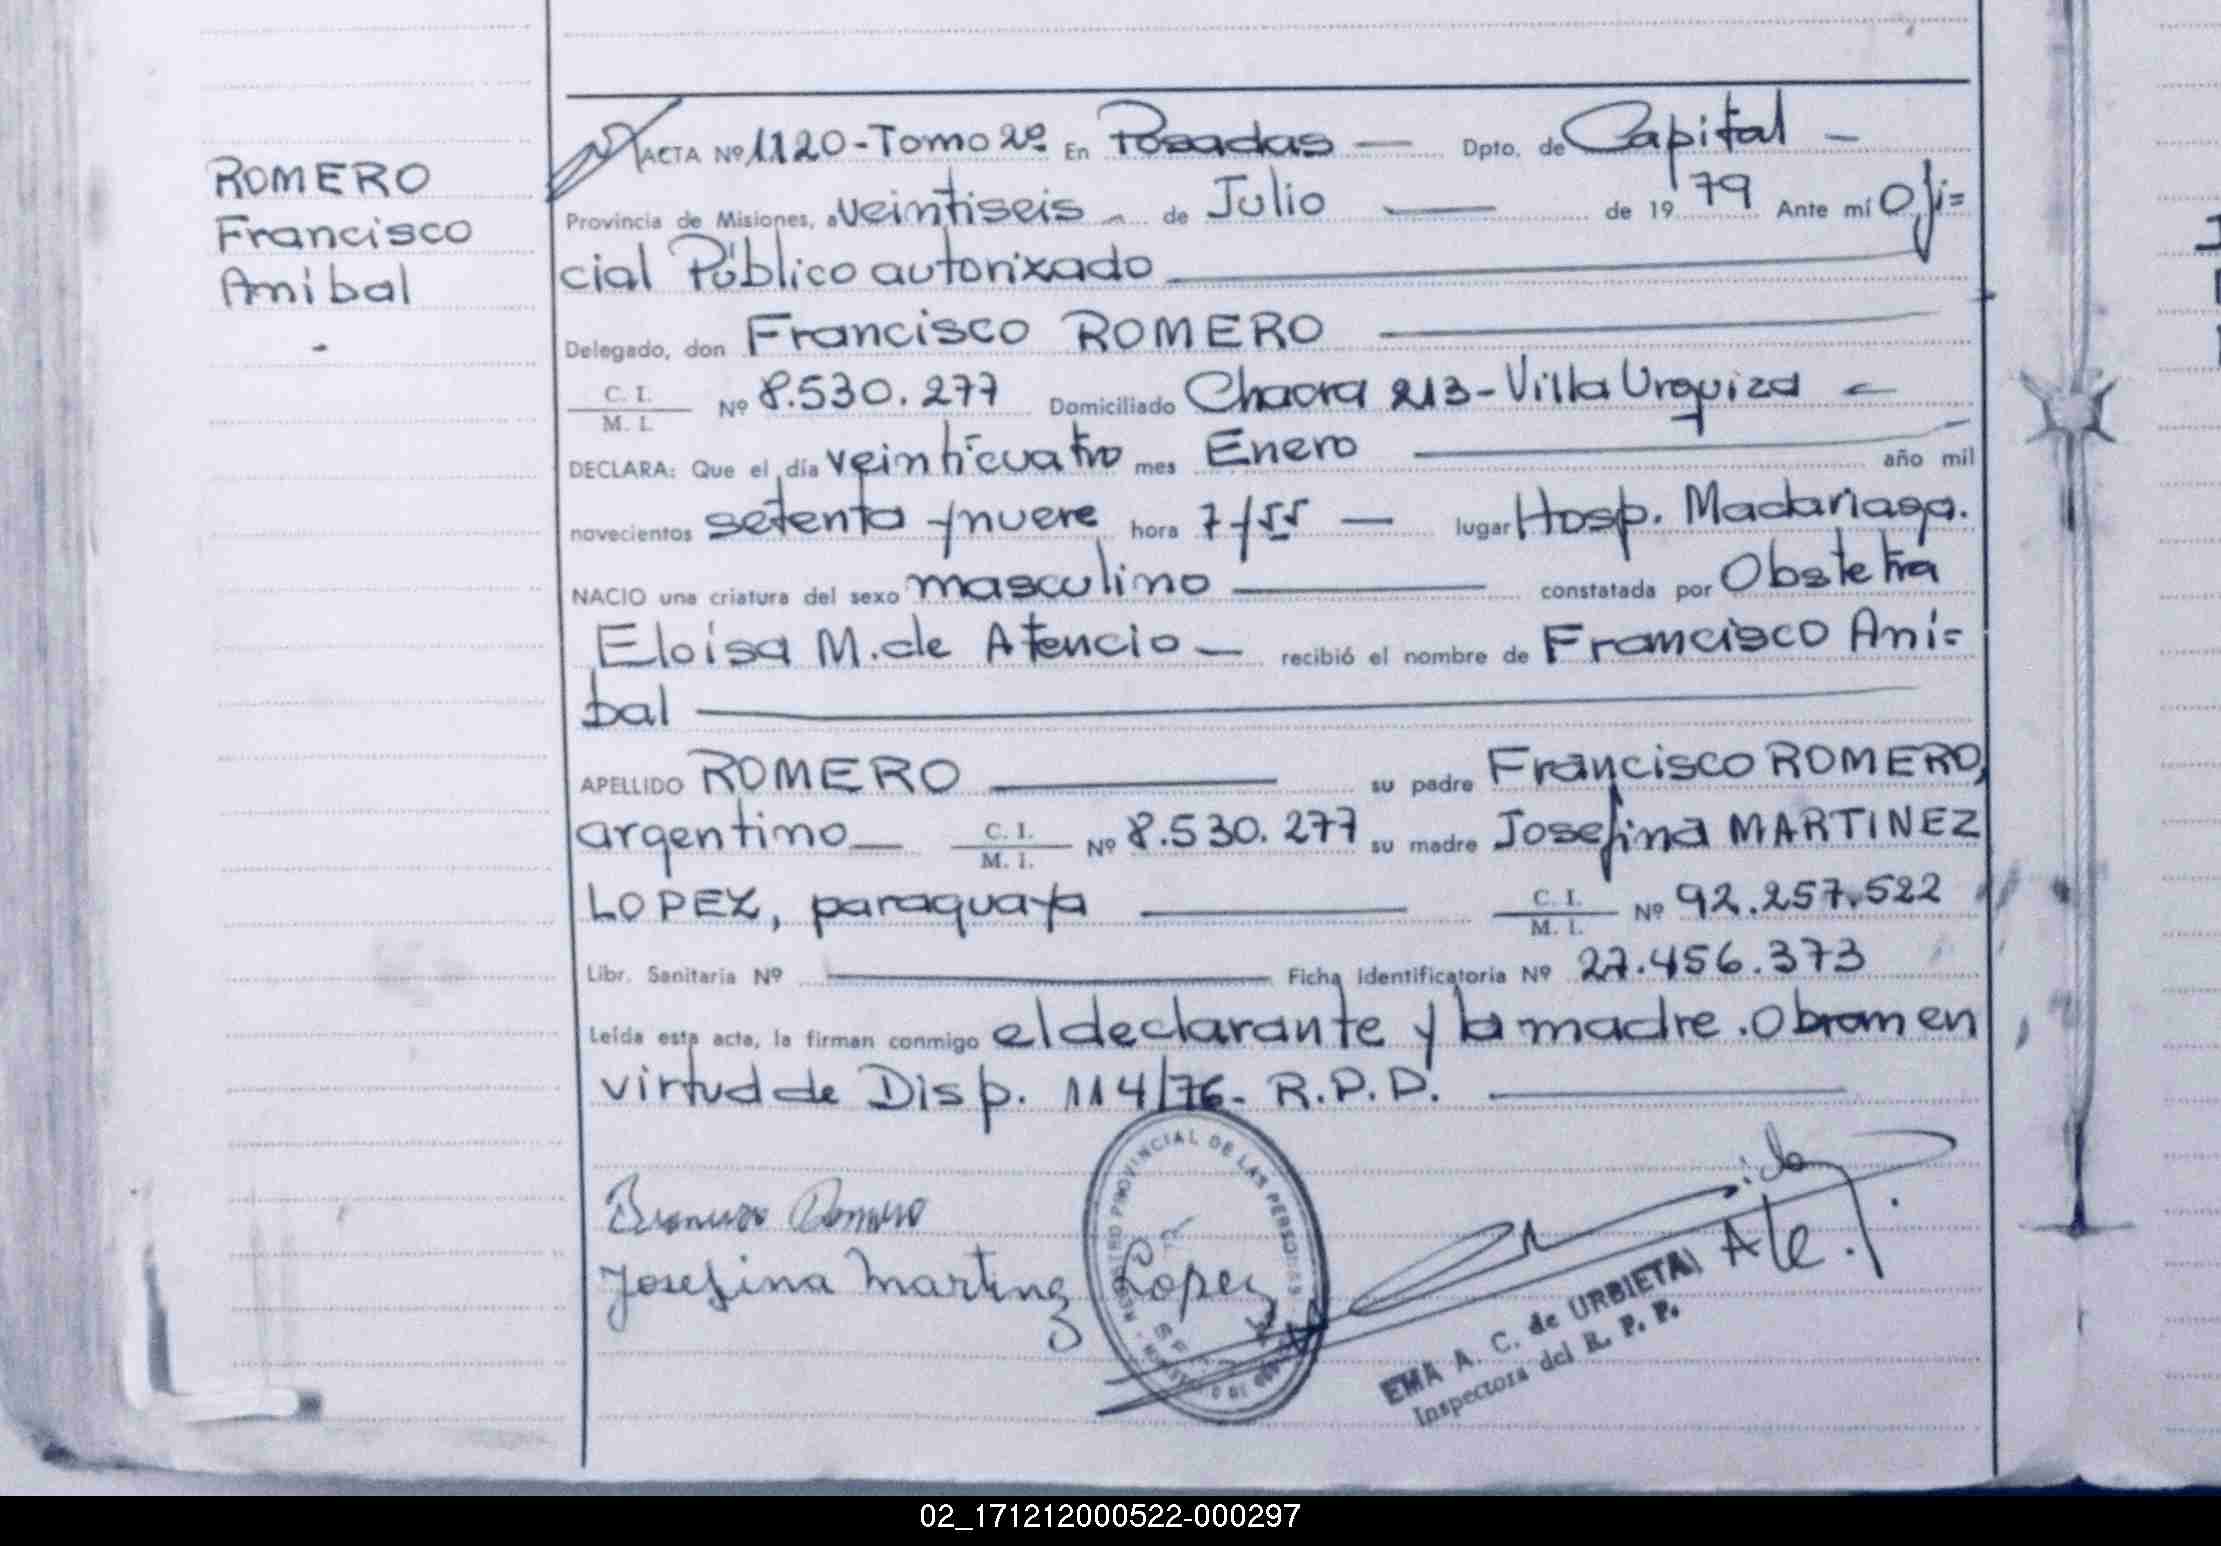 ROMERO
Francisco
Anibal
ACTA Nº 1120-Tomo 2º En Posadas — Dpto. de Capital —
Provincia de Misiones, a veintiseis de Julio — de 1979 Ante mí Ofi=
cial Público autorizado
Delegado, don Francisco ROMERO
C. I.
M. I. Nº 8.530.277 Domiciliado Chacra 213-Villa Urquiza
DECLARA: Que el día veinticuatro mes Enero año mil
novecientos setenta y nueve hora 7 y 55 — lugar Hosp. Madariaga.
NACIO una criatura del sexo masculino constatada por Obstetra
Eloisa M. de Atencio — recibió el nombre de Francisco Ani=
bal
APELLIDO ROMERO su padre Francisco ROMERO,
argentino C. I.
M. I. Nº 8.530.277 su madre Josefina MARTINEZ
LOPEZ, paraguaya C. I.
M. I. Nº 92.257.522
Libr. Sanitaria Nº Ficha Identificatoria Nº 27.456.373
Leída esta acta, la firman conmigo el declarante y la madre. Obran en
virtud de Disp. 114/76- R.P.P.
Francisco Romero
Josefina Martinez Lopez
REGISTRO PROVINCIAL DE LAS PERSONAS
EMA A. C. de URBIETA
Inspectora del R. P. P.
02_171212000522-000297